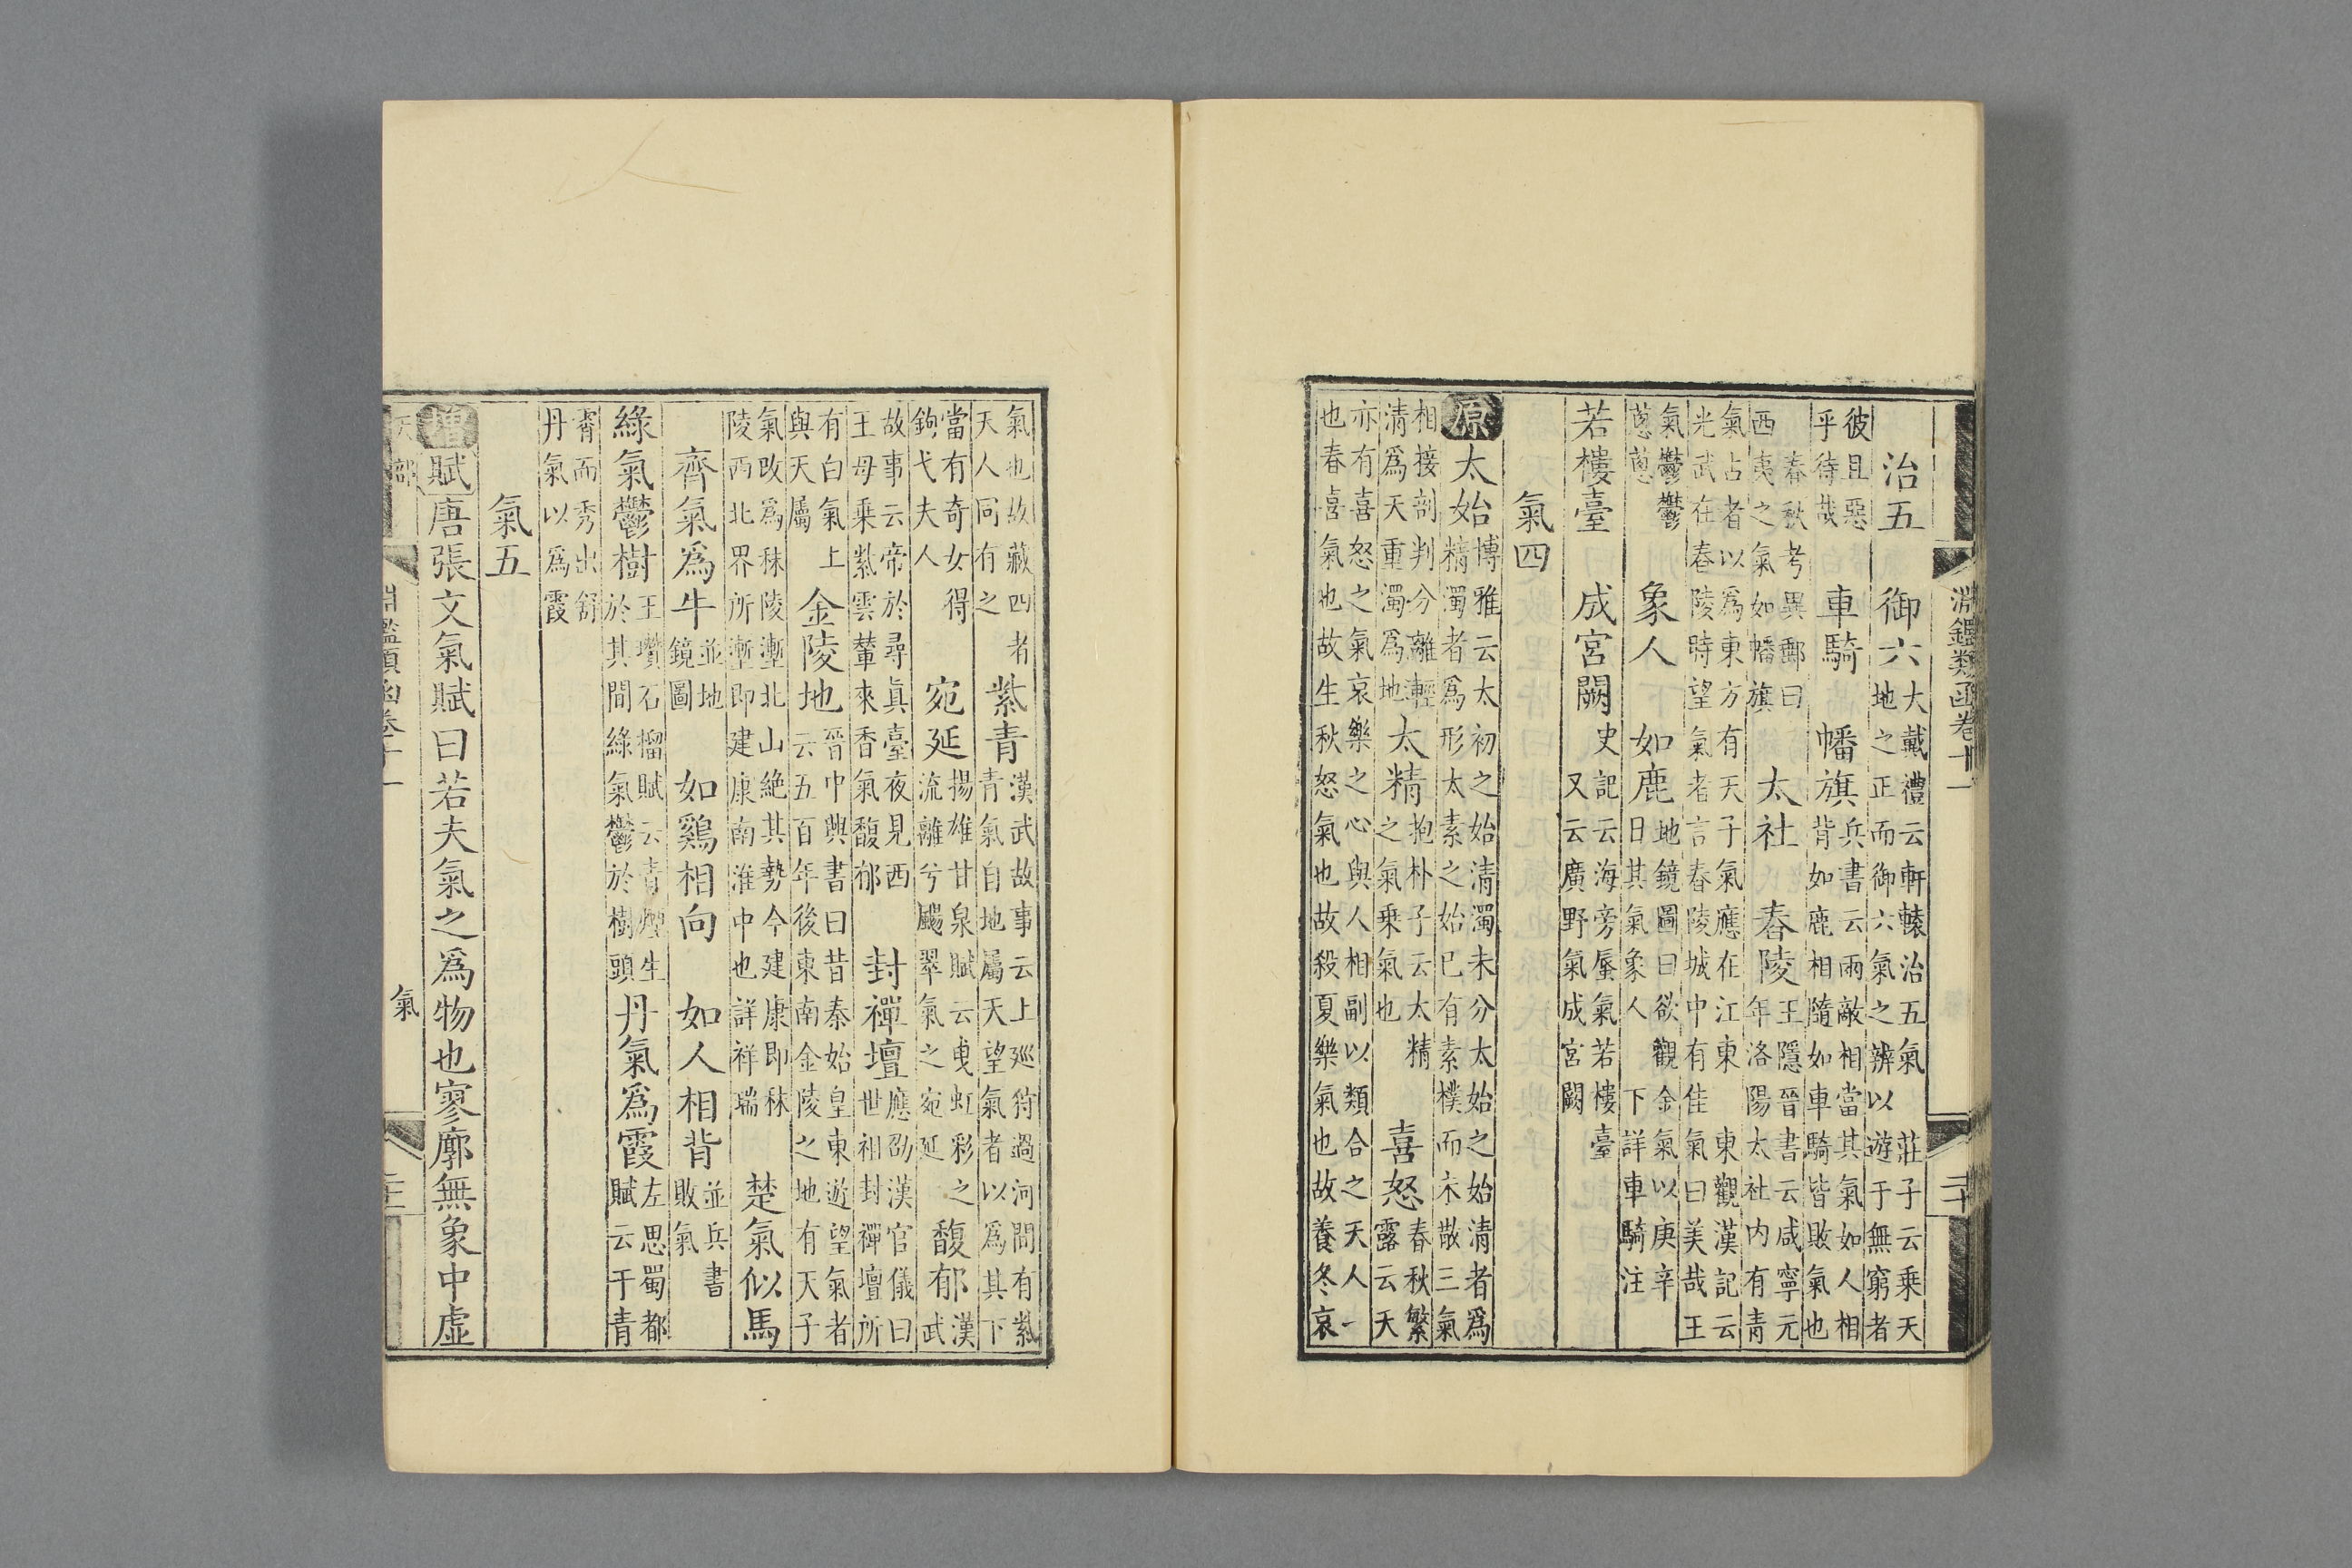 淵鑑類函卷十一 二十
治五 御六 大戴禮云軒轅治五氣 莊子云乘天
地之正而御六氣之辨以遊于無窮者
彼且惡
乎待哉 車騎 幡旗 兵書云兩敵相當其氣如人相
背如鹿相隨如車騎皆敗氣也
春秋考異郵曰
西夷之氣如幡旗 太社 舂陵 王隱晉書云咸寧元
年洛陽太社內有青
氣占者以爲東方有天子氣應在江東 東觀漢記云
光武在舂陵時望氣者言舂陵城中有佳氣曰美哉王
氣鬱鬱
蔥蔥 象人 如鹿 地鏡圖曰欲觀金氣以庚辛
日其氣象人 下詳車騎注
若樓臺 成宮闕 史記云海旁蜃氣若樓臺
又云廣野氣成宮闕
氣四
原 太始 博雅云太初之始清濁未分太始之始清者爲
精濁者爲形太素之始已有素樸而未散三氣
相接剖判分離輕
清爲天重濁爲地 太精 抱朴子云太精
之氣乘氣也 喜怒 春秋繁
露云天
亦有喜怒之氣哀樂之心與人相副以類合之天人一
也春喜氣也故生秋怒氣也故殺夏樂氣也故養冬哀
氣也故藏四者
天人同有之 紫青 漢武故事云上巡狩過河間有紫
青氣自地屬天望氣者以爲其下
當有奇女得
鉤弋夫人 宛延 揚雄甘泉賦云曳虹彩之
流離兮颺翠氣之宛延 馥郁 漢
武
故事云帝於尋眞臺夜見西
王母乘紫雲輦來香氣馥郁 封禪壇 應劭漢官儀曰
世祖封禪壇所
有白氣上
與天屬 金陵地 晉中興書曰昔秦始皇東遊望氣者
云五百年後東南金陵之地有天子
氣改爲秣陵塹北山絶其勢今建康即秣
陵西北界所塹即建康南淮中也詳祥瑞 楚氣似馬
齊氣爲牛 並地
鏡圖 如鷄相向 如人相背 並兵書
敗氣
綠氣鬱樹 王瓚石榴賦云青煙生
於其間綠氣鬱於樹頭 丹氣爲霞 左思蜀都
賦云干青
霄而秀出舒
丹氣以爲霞
氣五
增 賦 唐張文氣賦曰若夫氣之爲物也寥廓無象中虛
天部 淵鑑類函卷十一 氣